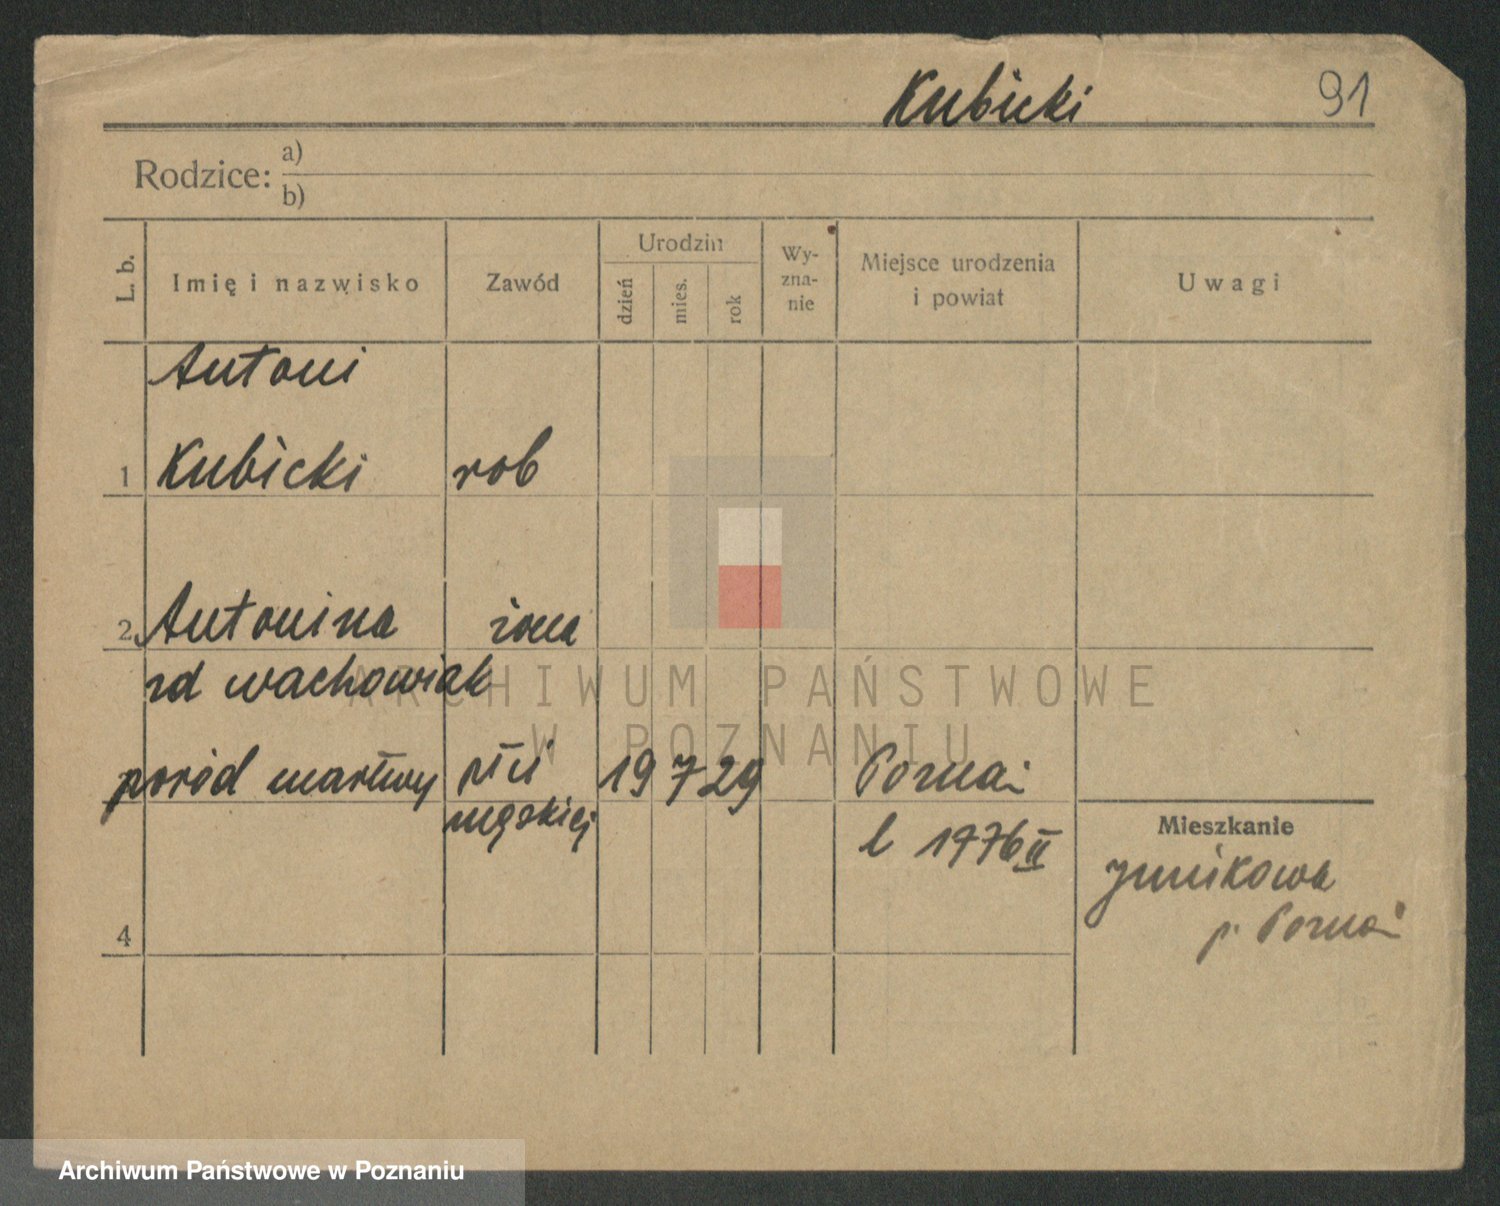 Kubicki 91
Rodzice: a)
b)
L. b. Imię i nazwisko Zawód Urodzin dzień mies. rok Wy-zna-nie Miejsce urodzenia i powiat Uwagi
Antoni
1 Kubicki rob
2 Antonina żona
zd wachowiak
ARCHIWUM PAŃSTWOWE
W POZNANIU
poród martwy płci 19 7 29 Poznań
męskiej
l 1776 II
Mieszkanie
Junikowa
p. Poznań
4
Archiwum Państwowe w Poznaniu